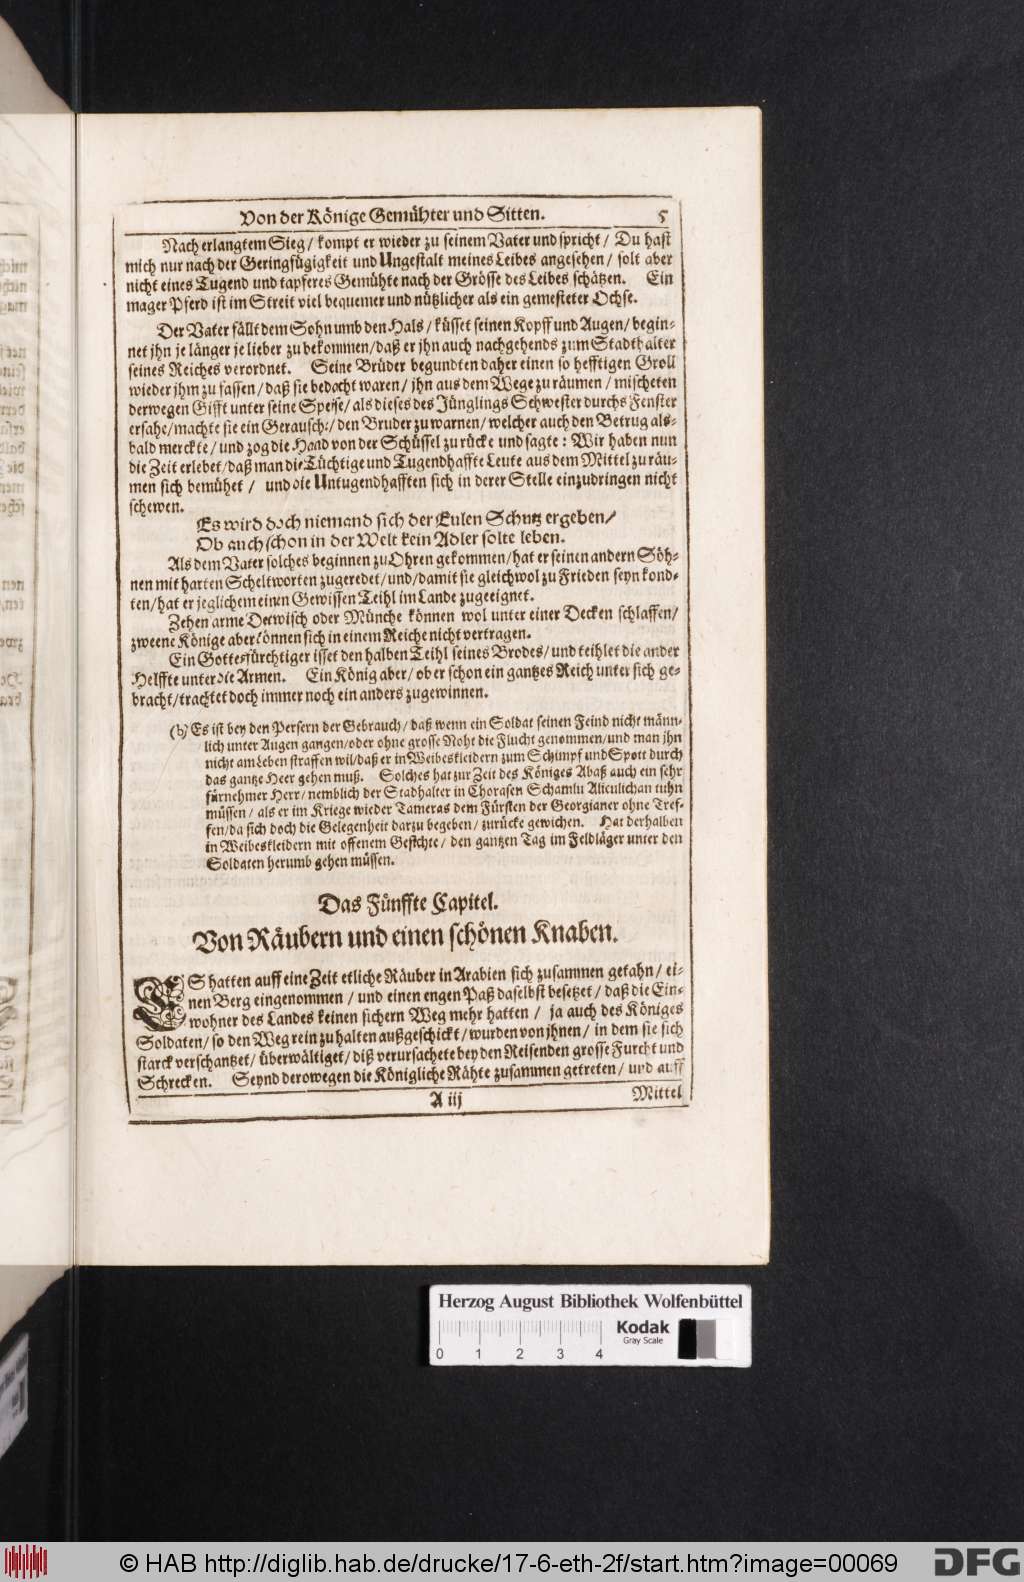 Von der Könige Gemühter und Sitten. 5
Nach erlangtem Sieg/ kompt er wieder zu seinem Vater und spricht/ Du hast
mich nur nach der Geringfügigkeit und Ungestalt meines Leibes angesehen/ solt aber
nicht eines Tugend und tapferes Gemühte nach der Grösse des Leibes schätzen. Ein
mager Pferd ist im Streit viel bequemer und nützlicher als ein gemesteter Ochse.
Der Vater fällt dem Sohn umb den Hals/ küsset seinen Kopff und Augen/ begin-
net jhn je länger je lieber zu bekommen/ daß er jhn auch nachgehends zum Stadthalter
seines Reiches verordnet. Seine Brüder begundten daher einen so hefftigen Groll
wieder jhm zu fassen/ daß sie bedacht waren/ jhn aus dem Wege zu räumen/ mischeten
derwegen Gifft unter seine Speise/ als dieses des Jünglings Schwester durchs Fenster
ersahe/ machte sie ein Gerausche/ den Bruder zu warnen/ welcher auch den Betrug als-
bald merckte/ und zog die Haad von der Schüssel zu rücke und sagte: Wir haben nun
die Zeit erlebet/ daß man die Tüchtige und Tugendhaffte Leute aus dem Mittel zu räu-
men sich bemühet/ und die Untugendhafften sich in derer Stelle einzudringen nicht
schewen.
Es wird doch niemand sich der Eulen Schutz ergeben/
Ob auch schon in der Welt kein Adler solte leben.
Als dem Vater solches beginnen zu Ohren gekommen/ hat er seinen andern Söh-
nen mit harten Scheltworten zugeredet/ und/ damit sie gleichwol zu Frieden seyn kond-
ten/ hat er jeglichem einen Gewissen Teihl im Lande zugeeignet.
Zehen arme Derwisch oder Münche können wol unter einer Decken schlaffen/
zweene Könige aber können sich in einem Reiche nicht vertragen.
Ein Gottesfürchtiger isset den halben Teihl seines Brodes/ und teihlet die ander
Helffte unter die Armen. Ein König aber/ ob er schon ein gantzes Reich unter sich ge-
bracht/ trachtet doch immer noch ein anders zugewinnen.
(b) Es ist bey den Persern der Gebrauch/ daß wenn ein Soldat seinen Feind nicht männ-
lich unter Augen gangen/ oder ohne grosse Noht die Flucht genommen/ und man jhn
nicht am Leben straffen wil/ daß er in Weibeskleidern zum Schimpf und Spott durch
das gantze Heer gehen muß. Solches hat zur Zeit des Königes Abaß auch ein sehr
fürnehmer Herr/ nemblich der Stadhalter in Chorasen Schamlu Aliculichan tuhn
müssen/ als er im Kriege wieder Tameras dem Fürsten der Georgianer ohne Tref-
fen/ da sich doch die Gelegenheit darzu begeben/ zurücke gewichen. Hat derhalben
in Weibeskleidern mit offenem Gesichte/ den gantzen Tag im Feldläger unter den
Soldaten herumb gehen müssen.
Das Fünffte Capitel.
Von Räubern und einen schönen Knaben.
ES hatten auff eine Zeit etliche Räuber in Arabien sich zusammen getahn/ ei-
nen Berg eingenommen/ und einen engen Paß daselbst besetzet/ daß die Ein-
wohner des Landes keinen sichern Weg mehr hatten/ ja auch des Königes
Soldaten/ so den Weg rein zu halten außgeschickt/ wurden von jhnen/ in dem sie sich
starck verschantzet/ überwältiget/ diß verursachete bey den Reisenden grosse Furcht und
Schrecken. Seynd derowegen die Königliche Rähte zusammen getreten/ und auff
A iij Mittel
Herzog August Bibliothek Wolfenbüttel
0 1 2 3 4
Kodak
Gray Scale
© HAB http://diglib.hab.de/drucke/17-6-eth-2f/start.htm?image=00069
DFG